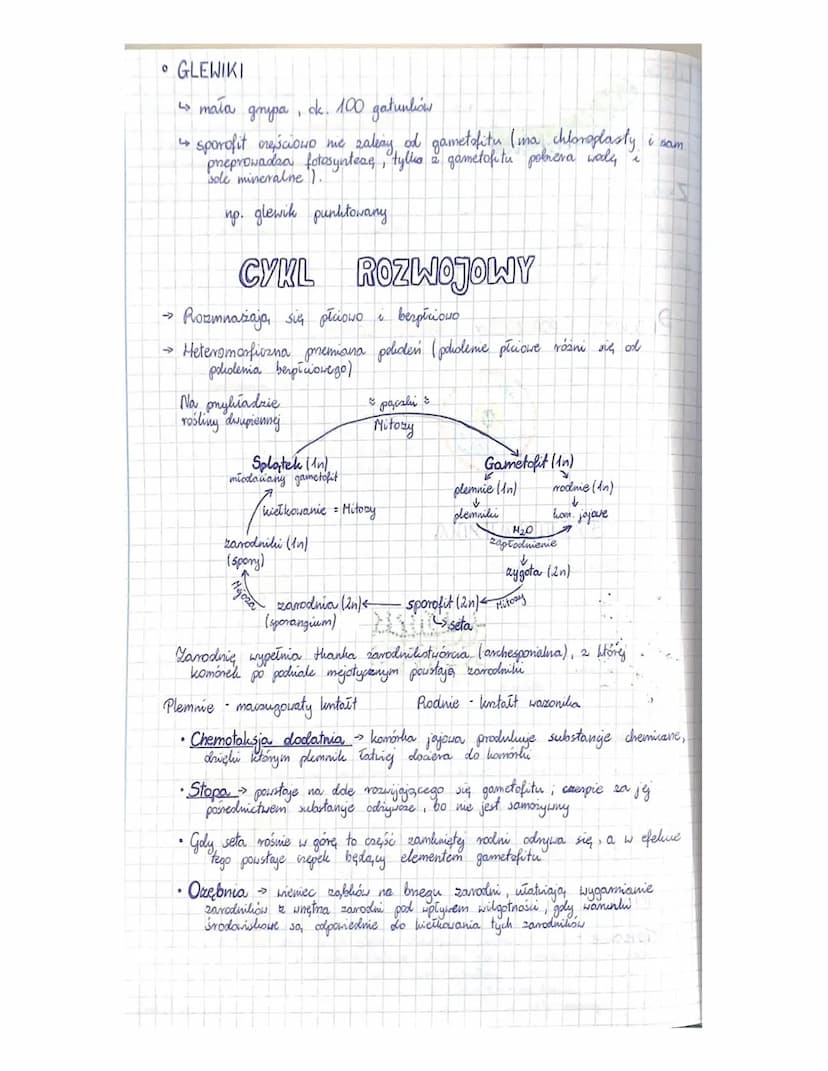 • GLEWIKI
↳ mała grupa, ok. 100 gatunków
↳ sporofit częściowo nie zależy od gametofitu (ma chloroplasty i sam
przeprowadza fotosyntezę, tylko z gametofitu pobiera wodę i
sole mineralne).
np. glewik punktowany
CYKL ROZWOJOWY
→ Rozmnażają się płciowo i bezpłciowo
→ Heteromorficzna przemiana pokoleń (pokolenie płciowe różni się od
pokolenia bezpłciowego)
Na przykładzie
rośliny dwupiennej
pączki
Mitozy
Splątek (1n)
młodociany gametofit
Gametofit (1n)
plemnie (1n) rodnie (1n)
plemniki kom. jajowe
kiełkowanie = Mitozy
H₂O
zapłodnienie
zarodniki (1n)
(spory)
zygota (2n)
Mejoza
zarodnia (2n) ← sporofit (2n) ← Mitozy
(sporangium) ↳ seta
Zarodnię wypełnia tkanka zarodnikotwórcza (archesporialna), z której
komórek po podziale mejotycznym powstają zarodniki
Plemnie - maczugowaty kształt Rodnie - kształt wazonika
• Chemotaksja dodatnia → komórka jajowa produkuje substancje chemiczne,
dzięki którym plemnik łatwiej dociera do komórki
• Stopa → powstaje na dole rozwijającego się gametofitu; czerpie za jej
pośrednictwem substancje odżywcze, bo nie jest samożywny
• Gdy seta rośnie w górę to część zamkniętej rodni odrywa się, a w efekcie
tego powstaje czepek będący elementem gametofitu
• Ozębnia → wieniec ząbków na brzegu zarodni, ułatwiają wygarnianie
zarodników z wnętrza zarodni pod wpływem wilgotności, gdy warunki
środowiskowe są odpowiednie do kiełkowania tych zarodników